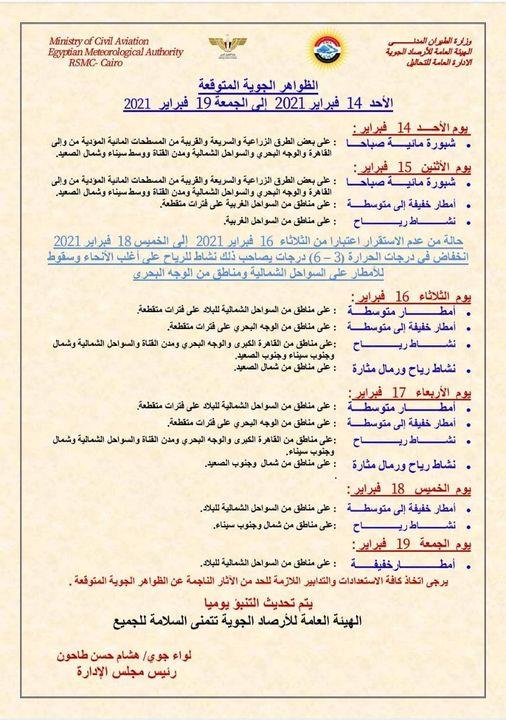 Ministry of Civil Aviation
Egyptian Meteorological Authority
RSMC- Cairo
وزارة الطيران المدنـــى
الهيئة العامة للأرصاد الجوية
الادارة العامة للتحاليل
الظواهر الجوية المتوقعة
الأحد 14 فبراير 2021 إلى الجمعة 19 فبراير 2021
يوم الأحـــد 14 فبراير :
• شبورة مائيـــة صباحـــا : على بعض الطرق الزراعية والسريعة والقريبة من المسطحات المائية المؤدية من وإلى
القاهرة والوجه البحري والسواحل الشمالية ومدن القناة ووسط سيناء وشمال الصعيد.
يوم الأثنين 15 فبراير :
• شبورة مائيـــة صباحـــا : على بعض الطرق الزراعية والسريعة والقريبة من المسطحات المائية المؤدية من وإلى
القاهرة والوجه البحري والسواحل الشمالية ومدن القناة ووسط سيناء وشمال الصعيد.
• أمطار خفيفة إلى متوسطــة : على مناطق من السواحل الغربية على فترات متقطعة.
• نشـــاط ريـــــاح : على مناطق من السواحل الغربية.
حالة من عدم الاستقرار اعتبارا من الثلاثاء 16 فبراير 2021 إلى الخميس 18 فبراير 2021
إنخفاض فى درجات الحرارة (3 – 6) درجات يصاحب ذلك نشاط للرياح على أغلب الأنحاء وسقوط
للأمطار على السواحل الشمالية ومناطق من الوجه البحري
يوم الثلاثاء 16 فبراير :
• أمطـــــار متوسطـــة : على مناطق من السواحل الشمالية للبلاد على فترات متقطعة.
• أمطار خفيفة إلى متوسطــة : على مناطق من الوجه البحري على فترات متقطعة.
• نشـــاط ريـــــاح : على مناطق من القاهرة الكبرى والوجه البحري ومدن القناة والسواحل الشمالية وشمال
وجنوب سيناء وجنوب الصعيد.
• نشاط رياح ورمال مثارة : على مناطق من شمال الصعيد.
يوم الأربعاء 17 فبراير :
• أمطـــــار متوسطـــة : على مناطق من السواحل الشمالية للبلاد على فترات متقطعة.
• أمطار خفيفة إلى متوسطــة : على مناطق من الوجه البحري على فترات متقطعة.
• نشـــاط ريـــــاح : على مناطق من القاهرة الكبرى والوجه البحري ومدن القناة والسواحل الشمالية وشمال
وجنوب سيناء.
• نشاط رياح ورمال مثارة : على مناطق من شمال وجنوب الصعيد.
.
يوم الخميس 18 فبراير :
• أمطار خفيفة إلى متوسطـــة : على مناطق من السواحل الشمالية للبلاد.
• نشـــاط ريـــــاح : على مناطق من شمال وجنوب سيناء.
يوم الجمعة 19 فبراير :
• أمطـــــارخفيفـــة : على مناطق من السواحل الشمالية للبلاد.
يرجى اتخاذ كافة الاستعدادات والتدابير اللازمة للحد من الآثار الناجمة عن الظواهر الجوية المتوقعة .
يتم تحديث التنبؤ يوميا
الهيئة العامة للأرصاد الجوية تتمنى السلامة للجميع
لواء جوي/ هشام حسن طاحون
رئيس مجلس الإدارة